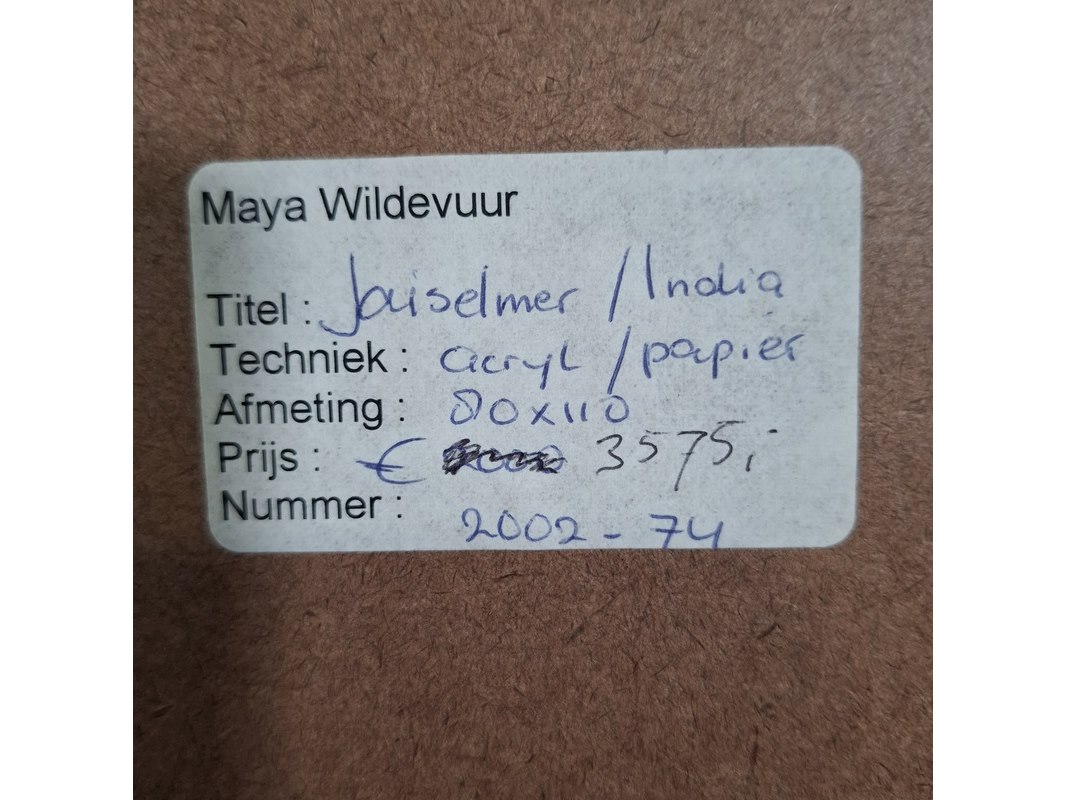 Maya Wildevuur
Titel : Jaiselmer / India
Techniek : acryl / papier
Afmeting : 80x110
Prijs : € 3575,-
Nummer : 2002 - 74